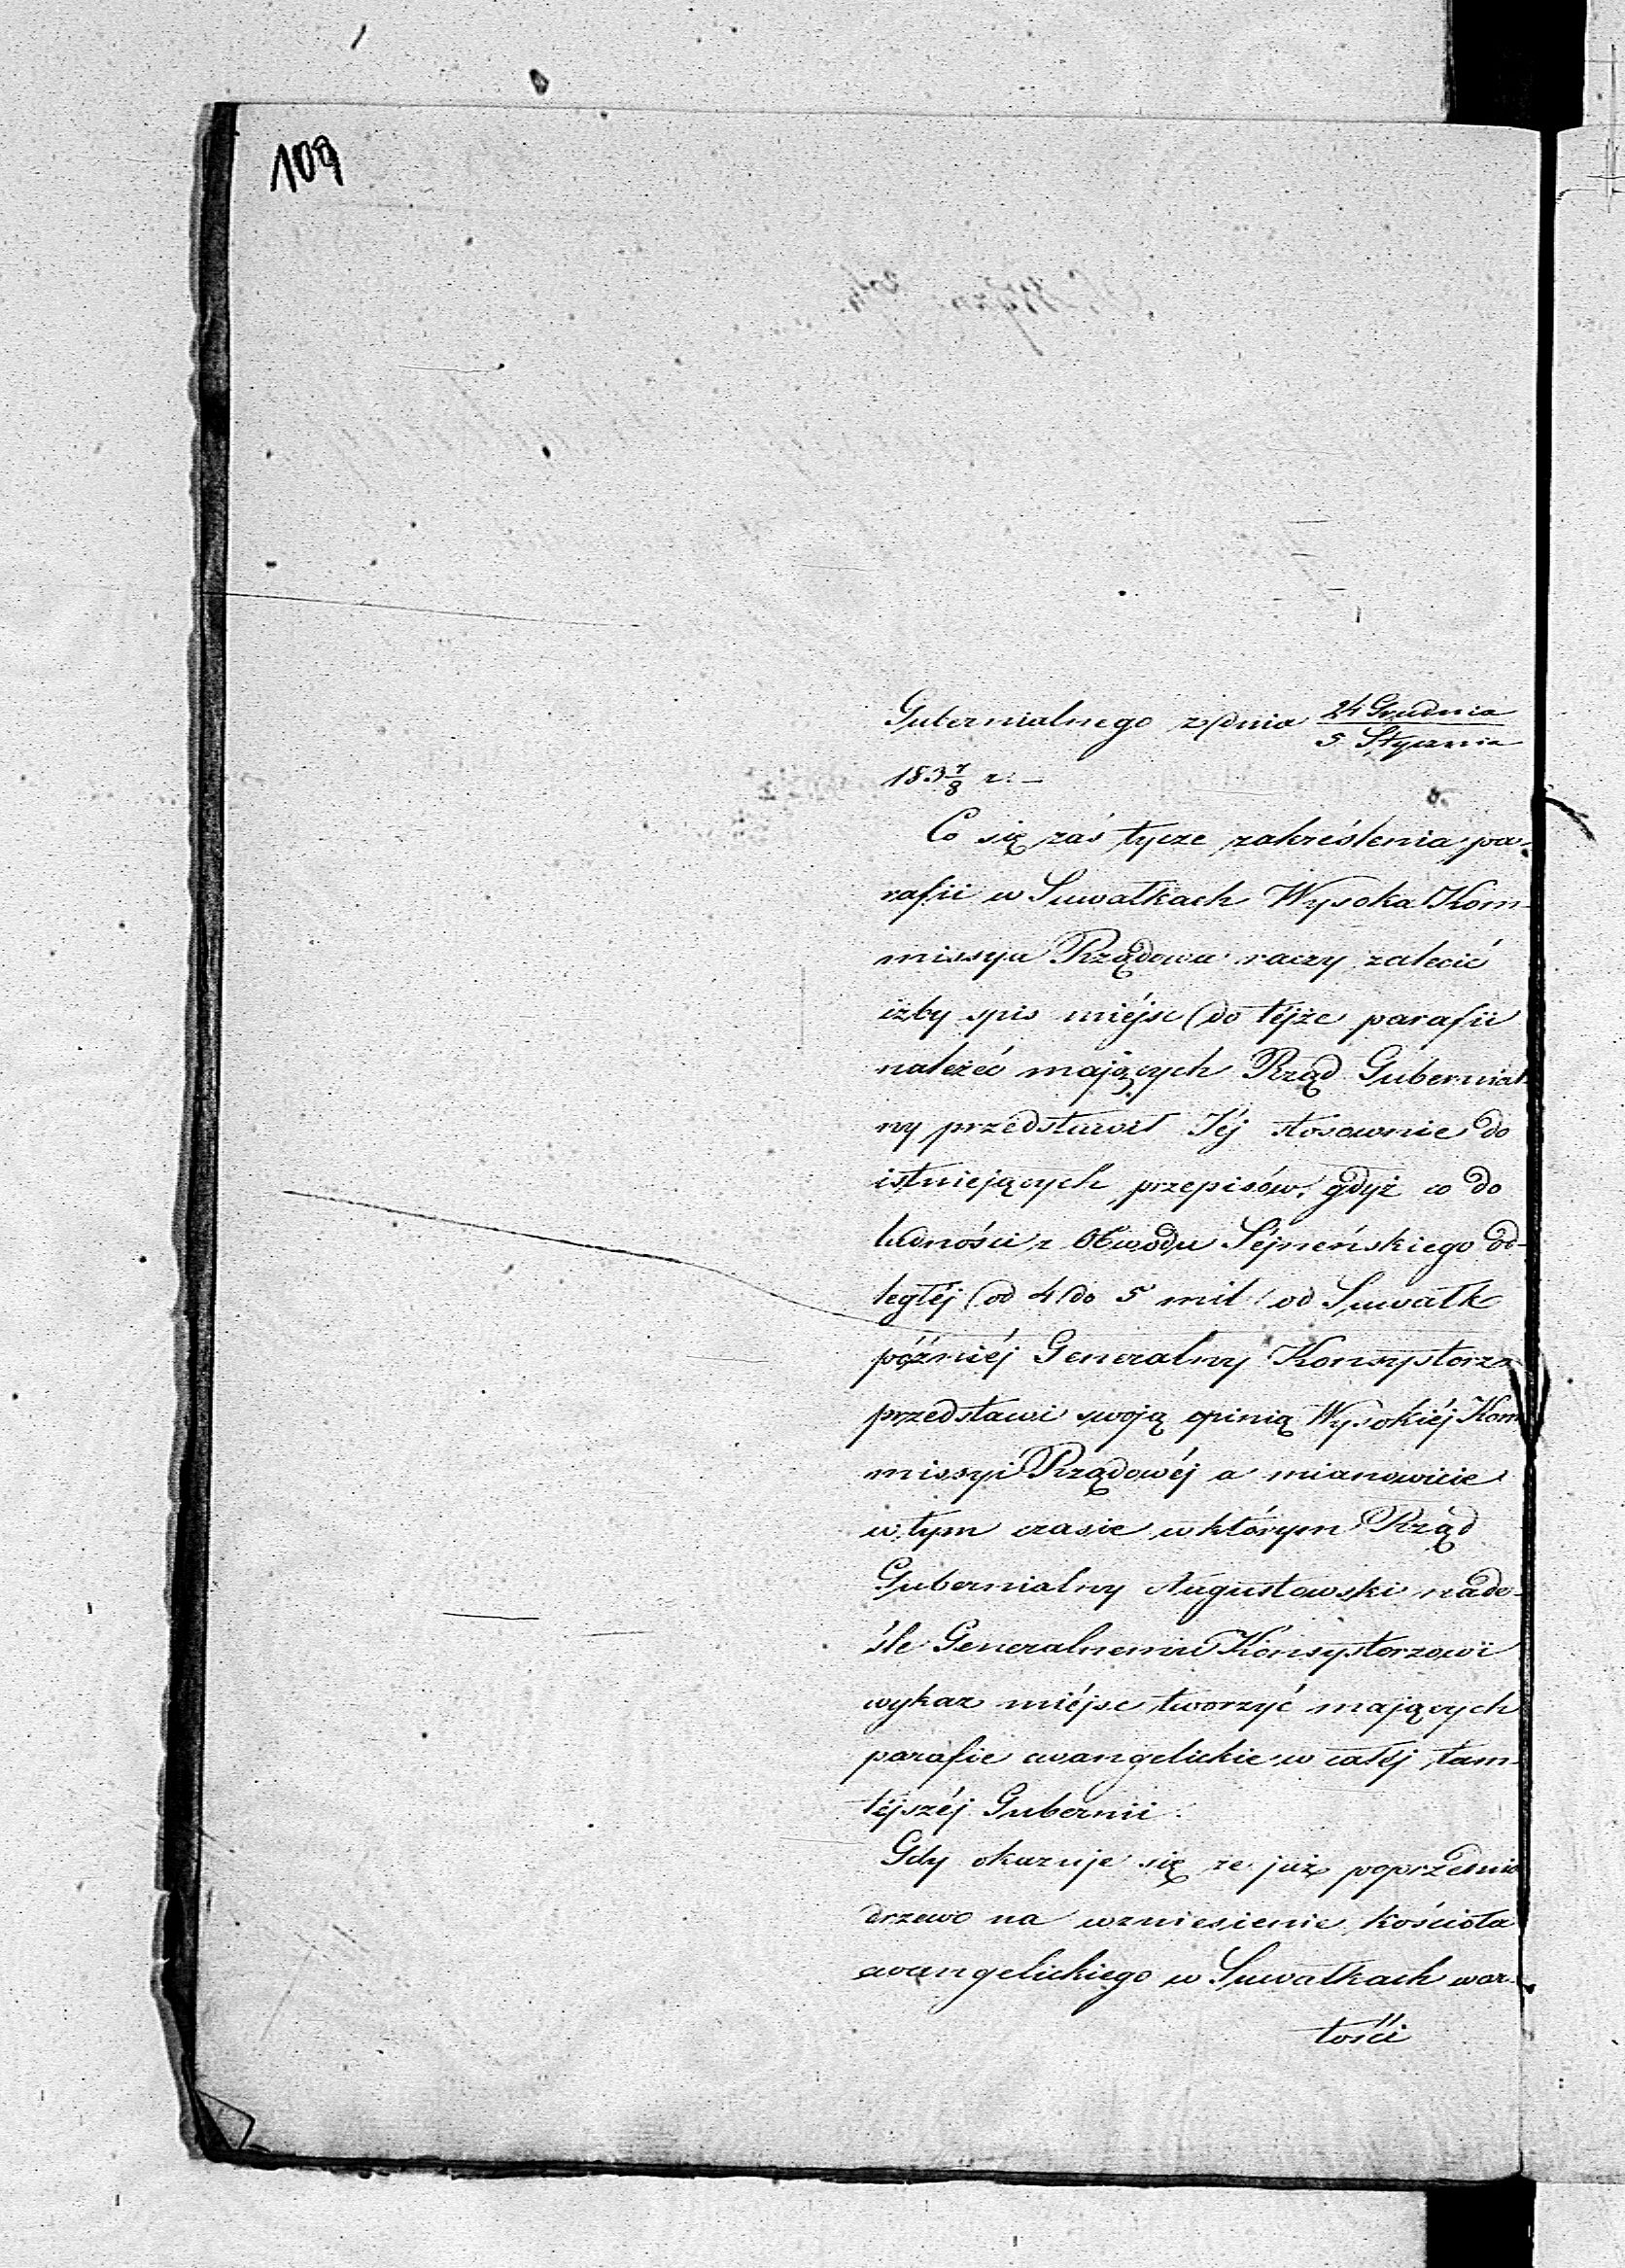 109
Gubernialnego z dnia 24 Grudnia / 5 Stycznia
183 7/8 r: –
Co się zaś tycze zakreślenia pa-
rafii w Suwałkach Wysoka Kom-
missya Rządowa raczy zalecić
iżby spis miéjsc do téjże parafii
należéć mających Rząd Gubernial-
ny przedstawił Jéj stosownie do
istniejących przepisów, gdyż co do
ludności z Obwodu Séjneńskiego od-
legléj od 4 do 5 mil od Suwałk
późniéj Generalny Konsystorz
przedstawi swoją opinią Wysokiéj Kom
missyi Rządowéj a mianowicie
w tym czasie w którym Rząd
Gubernialny Augustowski nade-
śle Generalnemu Konsystorzowi
wykaz miéjsc tworzyć mających
parafie ewangelickie w całéj tam-
téjszéj Gubernii.
Gdy okazuje się że już poprzednio
drzewo na wzniesienie kościoła
ewangelickiego w Suwałkach war-
tości